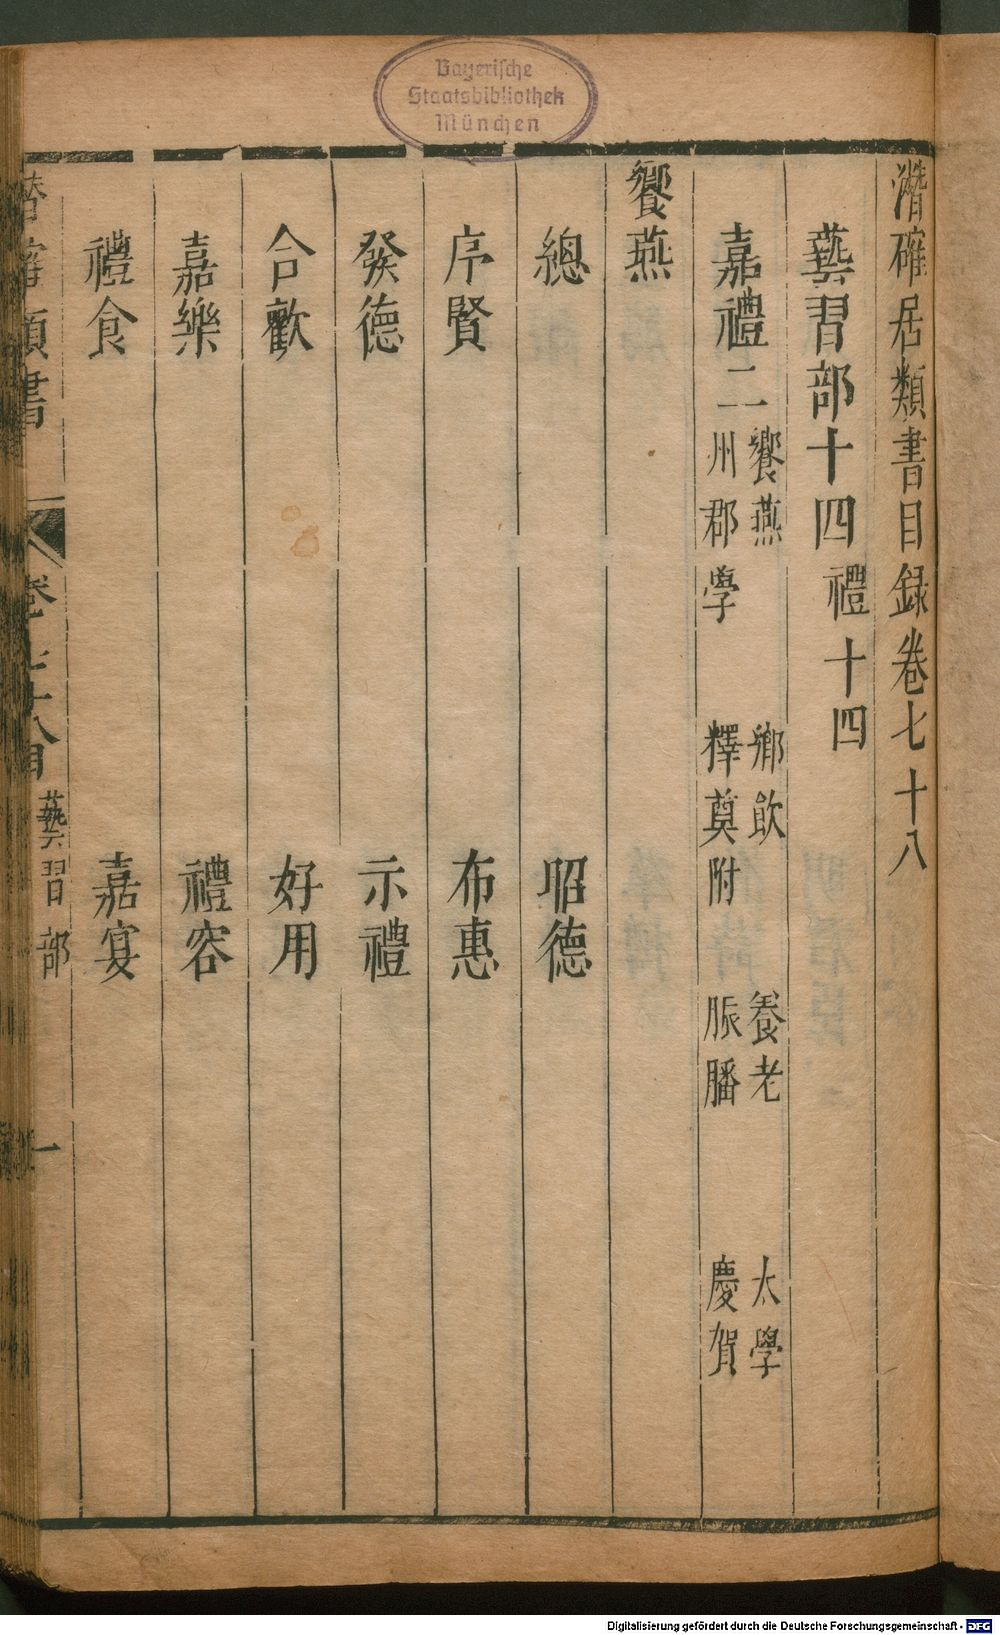 Bayerische
Staatsbibliothek
München
潛確居類書目録卷七十八
藝習部十四禮十四
嘉禮二 饗燕 鄉飲 養老 太學
州郡學 釋奠附 脤膰 慶賀
饗燕
總 昭德
序賢 布惠
發德 示禮
合歡 好用
嘉樂 禮容
禮食 嘉宴
潛確類書 卷七十八目 藝習部 一
Digitalisierung gefördert durch die Deutsche Forschungsgemeinschaft - DFG